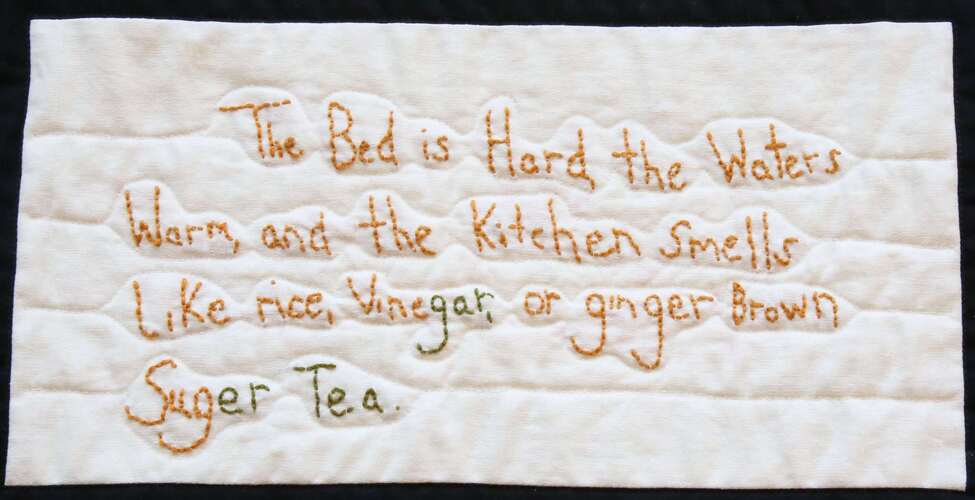 The Bed is Hard, the Waters
Warm, and the Kitchen smells
Like rice, Vinegar, or ginger Brown
Suger Tea.